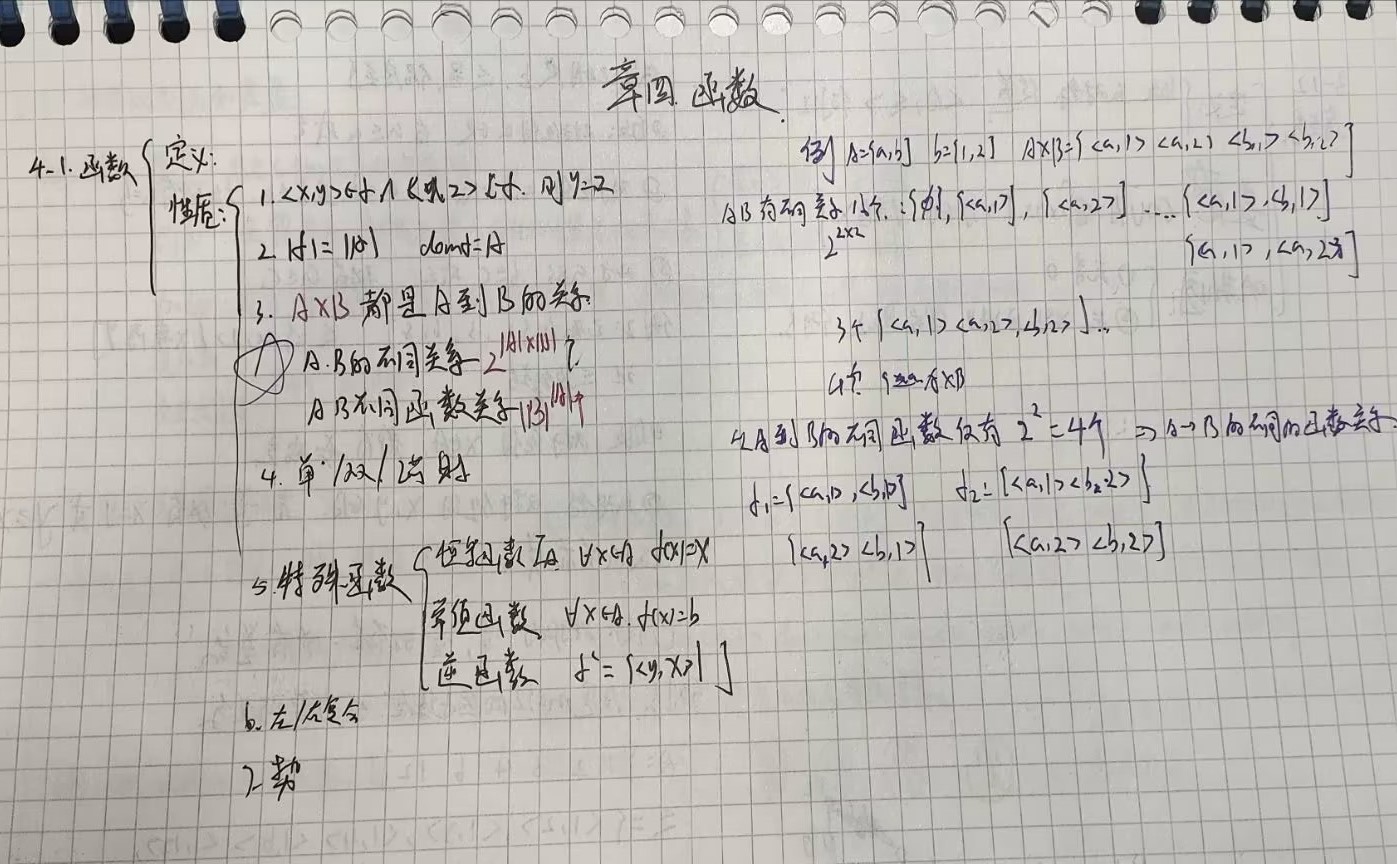 章四 函数
4-1. 函数
定义:
性质:
1. <x,y>∈f ∧ <y,z>∈f. 则y=z
2. |f|=|A| domf=A
3. A×B 都是A到B的关系
A.B的不同关系 2^|A|×|B| 个
A B不同函数关系 |B|^|A|个
4. 单/双/满射
5. 特殊函数
恒等函数 I_A ∀x∈A f(x)=x
常值函数 ∀x∈A. f(x)=b
逆函数 f^-1 = {<y,x>| }
6. 左/右复合
7. 势
例 A={a,b} b={1,2} A×B={<a,1> <a,2> <b,1> <b,2>}
A B 有不同关系 16个.:{∅},{<a,1>},{<a,2>}.....{<a,1>,<b,1>}
2^2×2
{<a,1>,<a,2>}
3个 {<a,1><a,2>,<b,2>}...
4个 A×B
2.A到B的不同函数仅有 2^2=4个 ⇒ A→B的不同的函数关系.
f1={<a,1>,<b,1>} f2={<a,1><b,2>}
{<a,2><b,1>} {<a,2><b,2>}